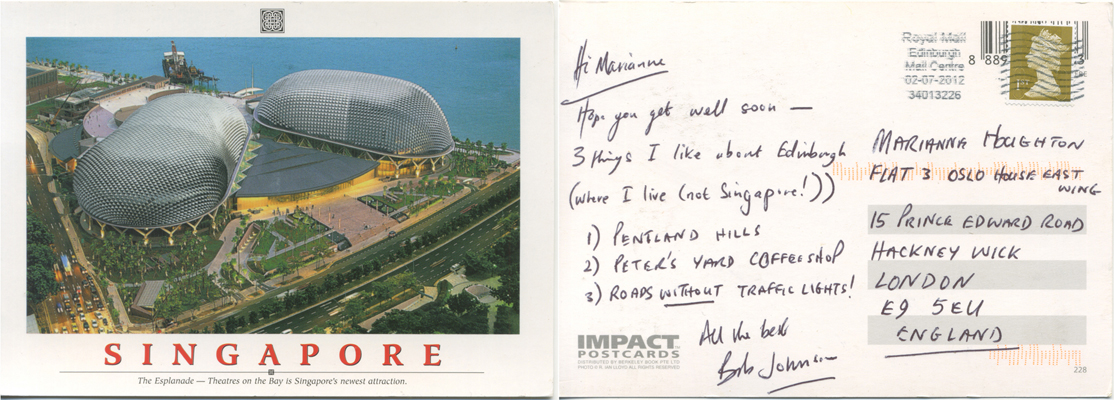 SINGAPORE
The Esplanade — Theatres on the Bay is Singapore's newest attraction.
Hi Marianne
Hope you get well soon —
3 things I like about Edinburgh
(where I live (not Singapore!))
1) PENTLAND HILLS
2) PETER'S YARD COFFEESHOP
3) ROADS WITHOUT TRAFFIC LIGHTS!
All the best
Bob Johnson
IMPACT
POSTCARDS
DISTRIBUTED BY BERKELEY BOOK PTE LTD
PHOTO © R. IAN LLOYD ALL RIGHTS RESERVED
Royal Mail
Edinburgh
Mail Centre
02-07-2012
34013226
8 889
MARIANNA HOUGHTON
FLAT 3 OSLO HOUSE EAST
WING
15 PRINCE EDWARD ROAD
HACKNEY WICK
LONDON
E9 5EU
ENGLAND
228